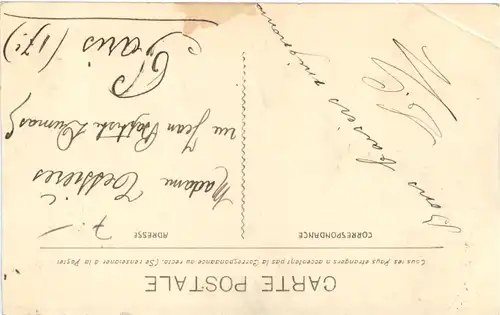 CARTE POSTALE
Tous les Pays étrangers n'acceptent pas la Correspondance au recto. (Se renseigner à la Poste)
CORRESPONDANCE
ADRESSE
Bons baisers
Madame Teissèdre
7
rue Jean Baptiste Dumas
Paris (17e)